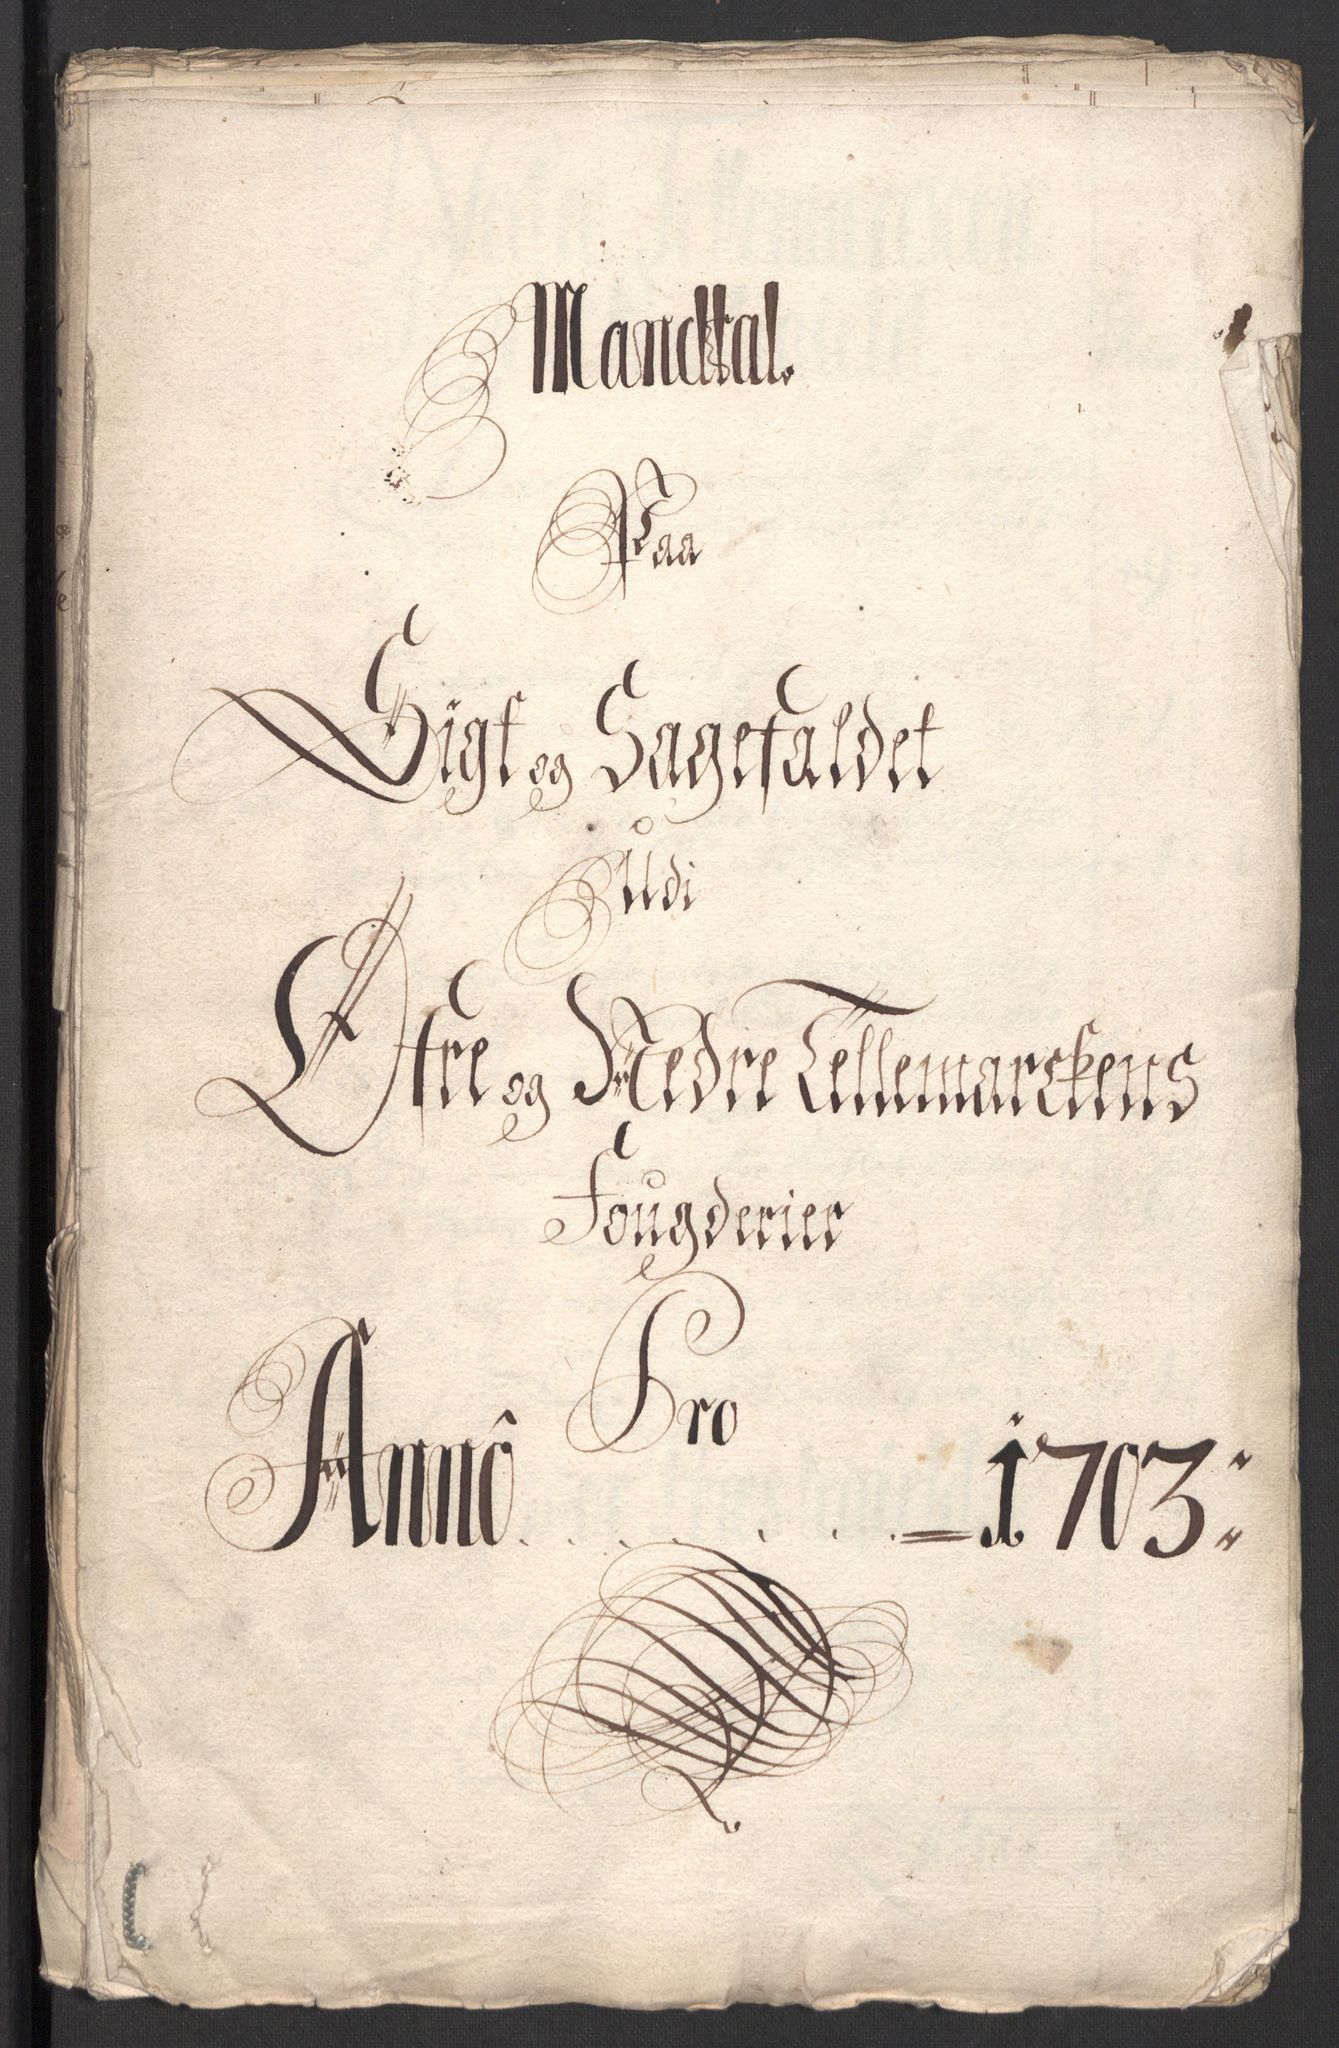 Mandtal.
Paa
Sigt og Sagefaldet
Udi
Øfre og Nedre Tellemarckens
Fougderier
Pro
Annô. . . . . . . = 1703